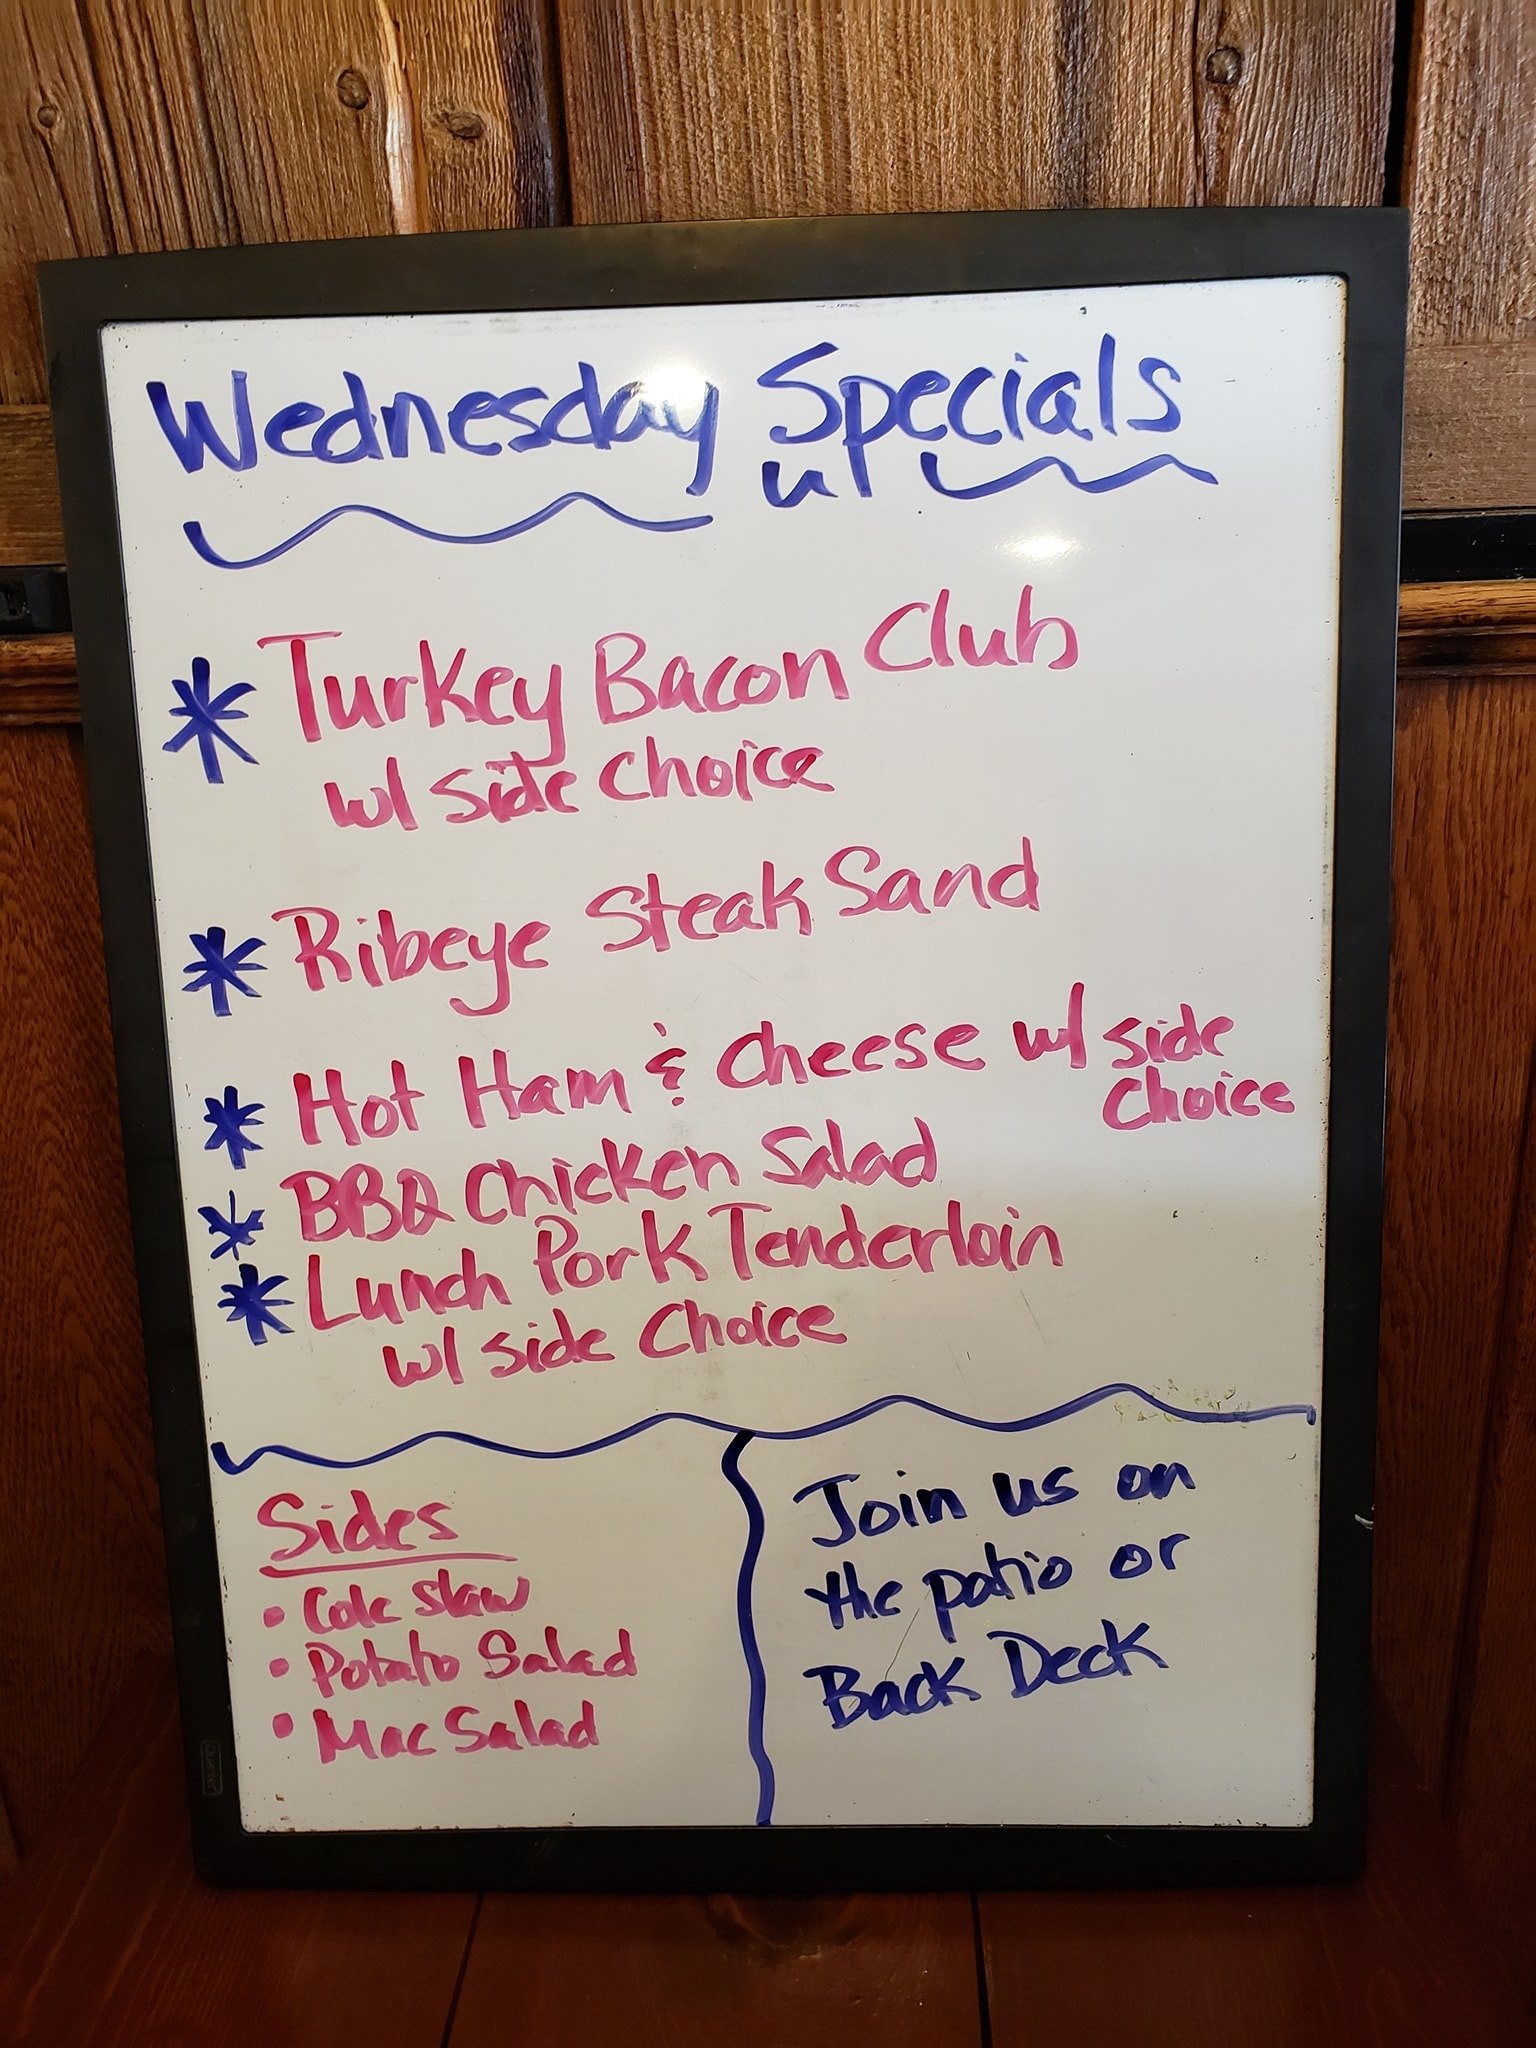 Wednesday Specials
* Turkey Bacon Club
w/ side choice
* Ribeye Steak Sand
* Hot Ham & Cheese w/ side
choice
* BBQ Chicken Salad
* Lunch Pork Tenderloin
w/ side choice
Sides
• Cole slaw
• Potato Salad
• Mac Salad
Join us on
the patio or
Back Deck